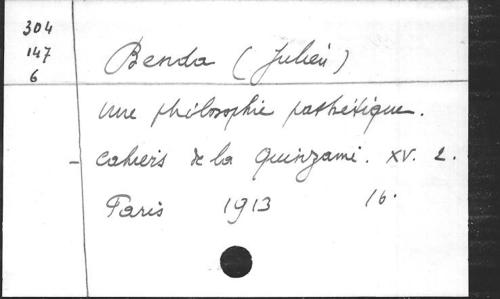 304
147
6
Benda (Julien)
une philosophie pathétique.
- Cahiers de la Quinzaine. XV. 2.
Paris 1913 16.